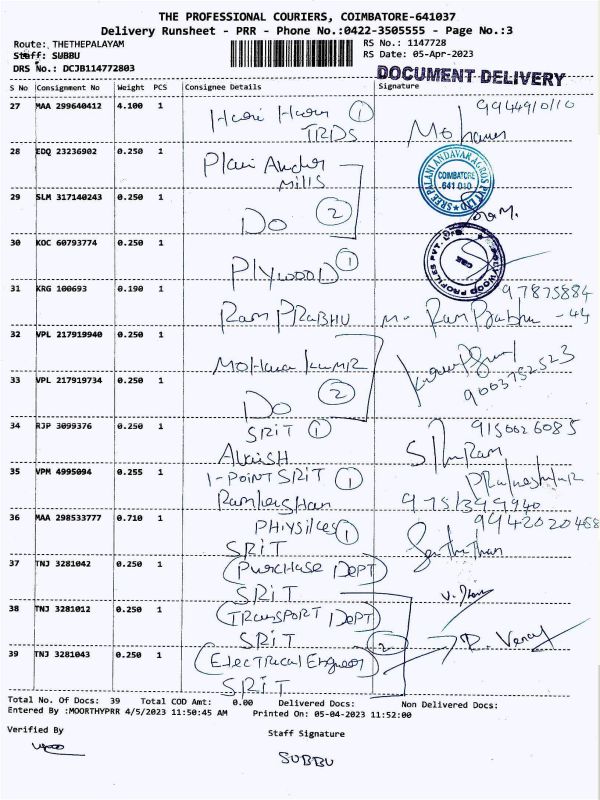 THE PROFESSIONAL COURIERS, COIMBATORE-641037
Delivery Runsheet - PRR - Phone No.:0422-3505555 - Page No.:3
Route: THETHEPALAYAM RS No.: 1147728
Staff: SUBBU RS Date: 05-Apr-2023
DRS No.: DCJB114772803
DOCUMENT DELIVERY
S No Consignment No Weight PCS Consignee Details Signature
27 MAA 299640412 4.100 1 Hari Hara 1
TRDS Mohan
28 EDQ 23236902 0.250 1 Plani Andar
Mills
SREE PALANI ANDAVAR AGROS PVT LTD
COIMBATORE
641 010
29 SLM 317140243 0.250 1 Do 2
30 KOC 60793774 0.250 1 PLYWOOD 1
POLYWOOD PROFILES PVT. LTD.
CBE
31 KRG 100693 0.190 1 97875884
Ram PRABHU M. Ram Prabhu - 44
32 VPL 217919940 0.250 1 Mohana Kumar
33 VPL 217919734 0.250 1 Do 2 9003752523
34 RJP 3099376 0.250 1 SRIT 1 9150026085
35 VPM 4995094 0.255 1 1-POINT SRIT 1
36 MAA 298533777 0.710 1 PHYSICS 1
SRIT Senthil
37 TNJ 3281042 0.250 1 (Purchase DEPT)
SRIT
38 TNJ 3281012 0.250 1 (TRANSPORT DEPT)
SRIT 2
39 TNJ 3281043 0.250 1 (Electrical Engineer)
SRIT
Total No. Of Docs: 39 Total COD Amt: 0.00 Delivered Docs: Non Delivered Docs:
Entered By :MOORTHYPRR 4/5/2023 11:50:45 AM Printed On: 05-04-2023 11:52:00
Verified By Staff Signature
SUBBU